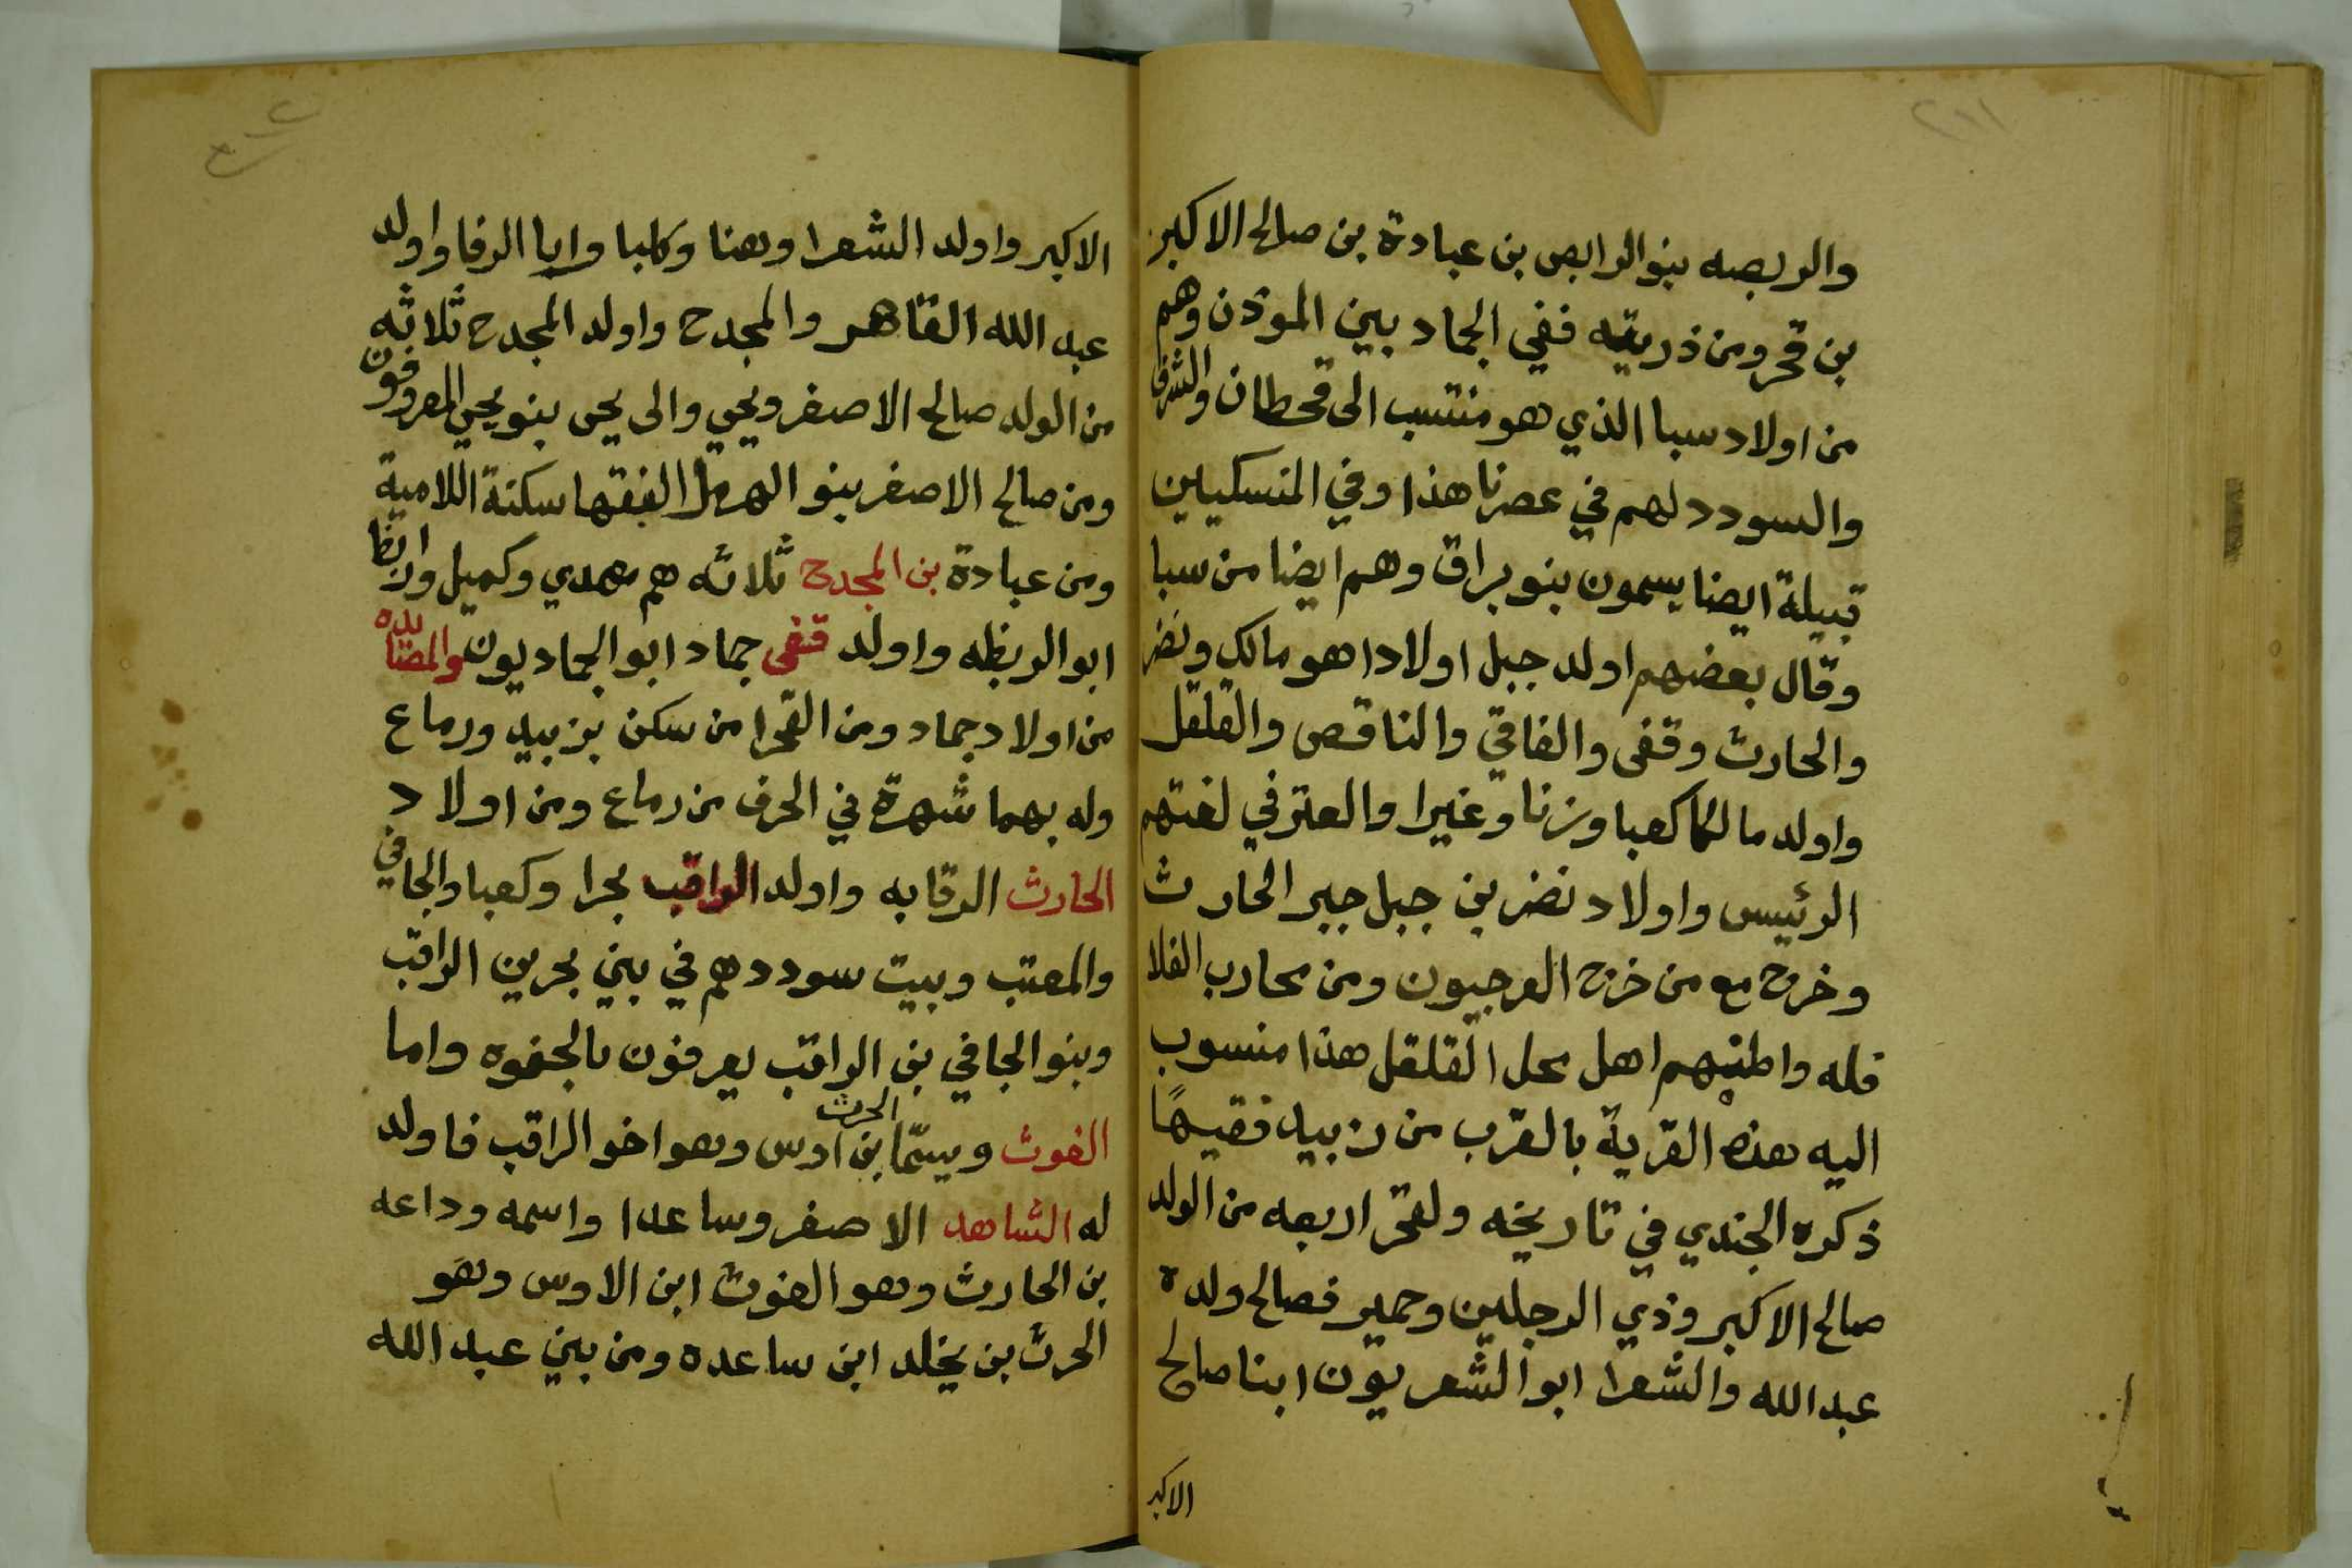 ٢١١
والربصه بنو الرابص بن عبادة بن صالح الاكبر
بن قحر ومن ذريته ففي الجماد بين المؤذن وهم
من اولاد سبا الذي هو منتسب الى قحطان والشرف
والسودد لهم في عصرنا هذا وفي المنسكيين
قبيلة ايضا يسمون بنو براق وهم ايضا من سبا
وقال بعضهم اولد جبل اولادا هو مالك ونضر
والحارث وقفى والفاقي والناقص والقلقل
واولد مالكا كعبا وزنا وغيرا والعتر في لغتهم
الرئيس واولاد نضر بن جبل جبر الحارث
وخرج مع من خرج العرجيون ومن محارب الفلا
فله واطنهم اهل محل القلقل هذا منسوب
اليه هذه القرية بالقرب من زبيد فقيهًا
ذكره الجندي في تاريخه ولقحر اربعه من الولد
صالح الاكبر وذي الرجلين وحمير فصالح ولده
عبد الله والشعرا ابو الشعريون ابنا صالح
الاكبر
الاكبر واولد الشعرا وهنا وكلبا وابا الرفا واولد
عبد الله القاهر والمجدح واولد المجدح ثلاثه
من الولد صالح الاصفر ويحي والى يحى بنو يحيى المعروفون
ومن صالح الاصفر بنو الهرمل الفقها سكنة اللامية
ومن عبادة بن المجدح ثلاثه هم مهدي وكميل ورايظا
ابو الربظه واولد قفى جماد ابو الجماديون والمصابده
من اولاد جماد ومن القحرا من سكن بزبيد ورماع
وله بهما شهرة في الحرف من رماع ومن اولاد
الحارث الرقابه واولد الراقب بحرا وكعبا والجافي
والمعتب وبيت سوددهم في بني بحر بن الراقب
وبنو الجافي بن الراقب يعرفون بالجفوه واما
الغوث ويسمّا الحرث بن اوس وهو اخو الراقب فاولد
له الشاهد الاصفر وساعدا واسمه وداعه
بن الحارث وهو الغوث ابن الاوس وهو
الحرث بن يخلد ابن ساعده ومن بني عبد الله